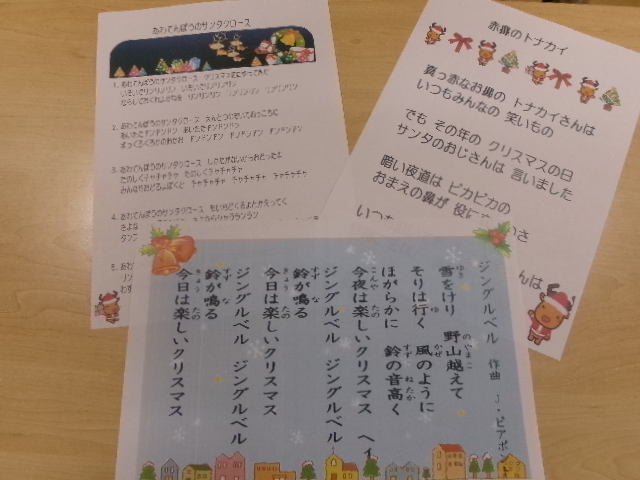 あわてんぼうのサンタクロース
1. あわてんぼうのサンタクロース クリスマスまえにやってきた
いそいでリンリンリン いそいでリンリンリン
ならしておくれよかねを リンリンリン リンリンリン リンリンリン
2. あわてんぼうのサンタクロース えんとつのぞいておっこちた
あいたたドンドンドン あいたたドンドンドン
まっくろくろけのおかお ドンドンドン ドンドンドン ドンドンドン
3. あわてんぼうのサンタクロース しかたがないからおどったよ
たのしくチャチャチャ たのしくチャチャチャ
みんなもおどろよぼくと チャチャチャ チャチャチャ チャチャチャ
4. あわてんぼうのサンタクロース もいちどくるよとかえってく
さよなら
タンブ
5. あわ
リン
わす
赤鼻のトナカイ
真っ赤なお鼻の トナカイさんは
いつもみんなの 笑いもの
でも その年の クリスマスの日
サンタのおじさんは 言いました
暗い夜道は ピカピカの
おまえの鼻が 役に
いつ
さんは
ジングルベル 作曲 J・ピアポン
雪をけり 野山越えて
そりは行く 風のように
ほがらかに 鈴の音高く
今夜は楽しいクリスマス ヘイ
ジングルベル ジングルベル
鈴が鳴る
今日は楽しいクリスマス
ジングルベル ジングルベル
鈴が鳴る
今日は楽しいクリスマス